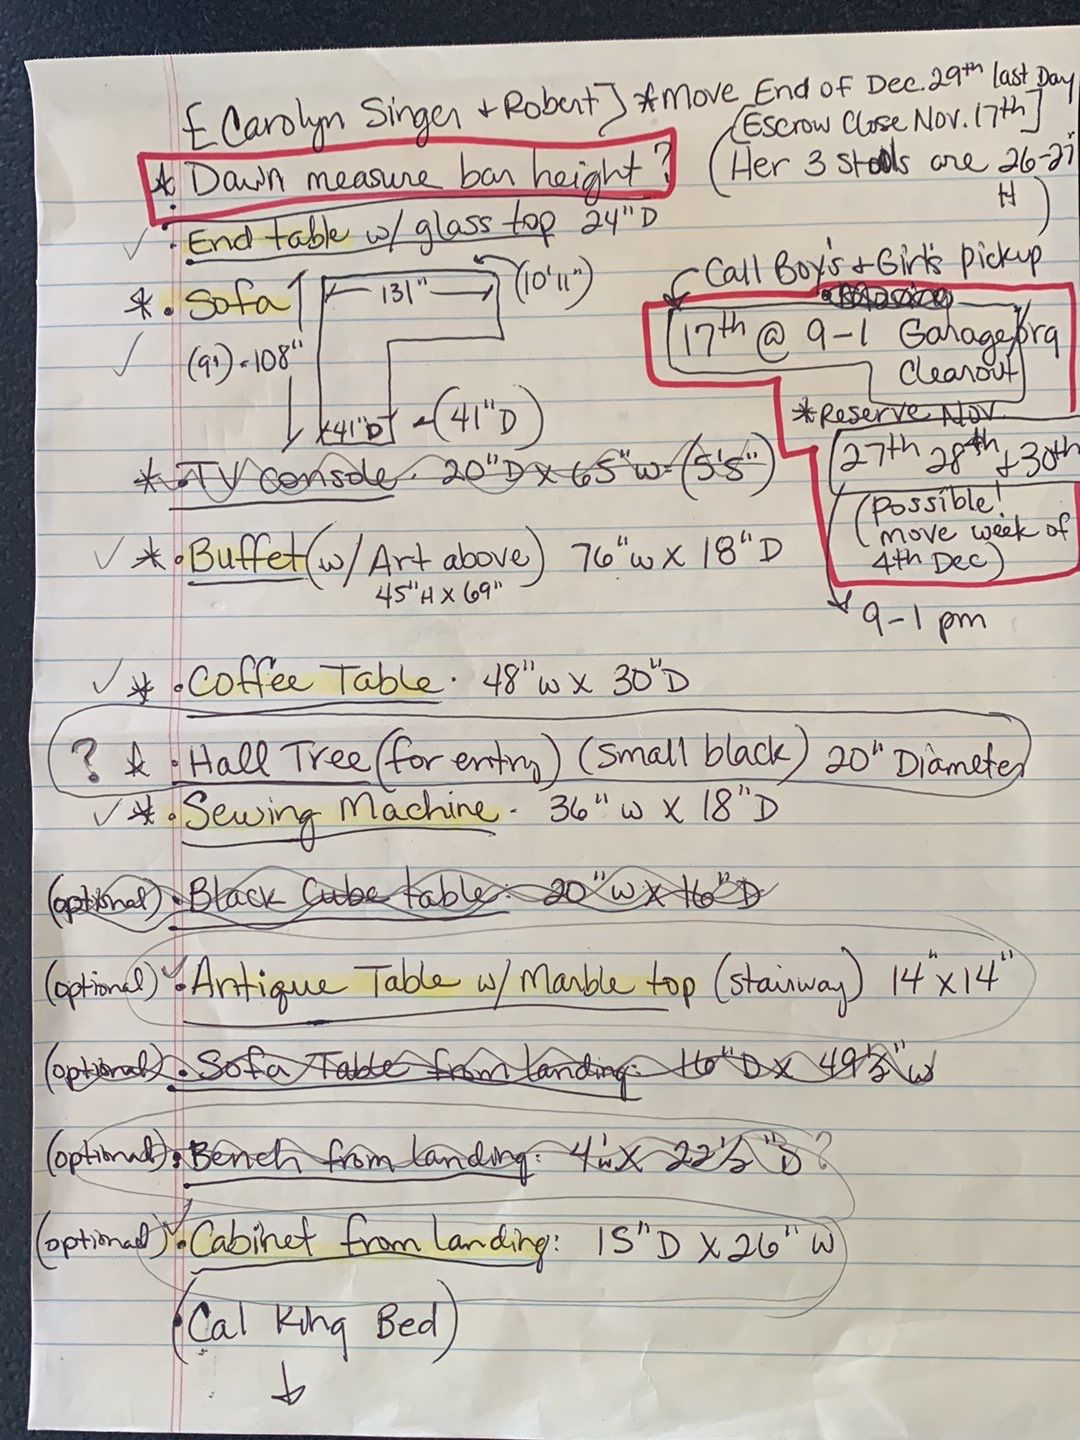 [Carolyn Singer + Robert] *Move End of Dec. 29th last Day
[Escrow Close Nov. 17th]
* Dawn measure bar height?
(Her 3 stools are 26-27"
H)
✓ • End table w/ glass top 24"D
* • Sofa 131" (10'11")
✓ (9') - 108"
41"D - (41"D)
Call Boy's + Girl's pickup
17th @ 9-1 Garage/org
Cleanout
*Reserve Nov.
27th 28th + 30th
(possible!
move week of
4th Dec)
9-1 pm
* • TV console • 20"D x 65"W - (5'5")
✓ * • Buffet (w/ Art above) 76"W x 18"D
45"H x 69"
✓ * • Coffee Table • 48"W x 30"D
? * • Hall Tree (for entry) (small black) 20" Diameter
✓ * • Sewing Machine • 36"W x 18"D
(optional) • Black Cube table: 20"W x 16"D
(optional) ✓ • Antique Table w/ Marble top (stairway) 14"x14"
(optional) • Sofa Table from landing: 16"D x 49½"W
(optional) • Bench from landing: 4'W x 22½"D ?
(optional) ✓ • Cabinet from landing: 15"D x 26"W
(• Cal King Bed)